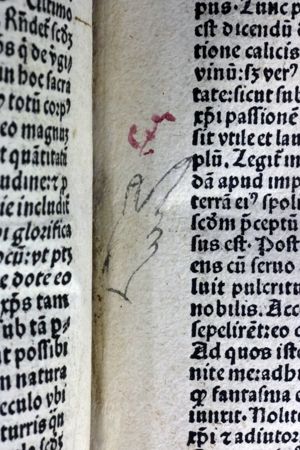 Ultimo
os q̃ de
in hoc sacra
totũ corpꝰ
eo magnuʒ
quãtitatẽ
udine: ꞇ p
ie includit
glorifica
ocũ: vt ptʒ
e dote eo
xp̃s tam
sub tã ꝑ
at possibi
n natura
seculo vbi
turris qñ
le scdʒ
pus. Tunc p
est dicendũ
tione calicis
vinũ: sʒ verꝰ
tate: sicut sub
xp̃i passionẽ
sit vtile et lau
plũ. Legit̃ im
dã apud imp
terrã eiꝰ spoli
scd̃m p̃ceptũ
sus est. Post
ens cũ seruo
luit pulcritu
nobilis. Acc
sepelirẽt: eo
Ad quos iste
nite me: adh
ꝙ fantasma
iunxit. Nolit
xp̃i ꞇ adiutori